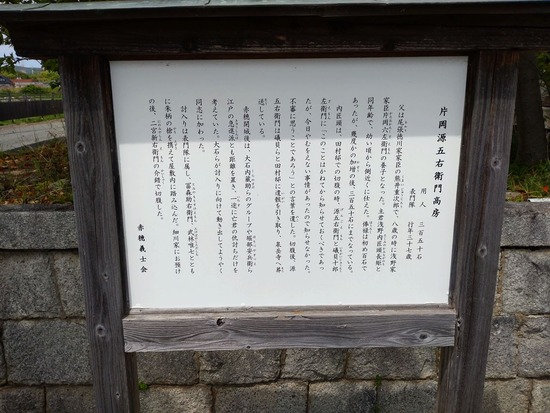 片岡源五右衛門高房
用人 三百五十石
表門隊 行年三十七歳
父は尾張徳川家家臣の熊井重次郎で、八歳の時に浅野家
家臣片岡六左衛門の養子となった。主君浅野内匠頭長矩と
同年齢で、幼い頃から側近くに仕えた。俸禄は初め百石で
あったが、幾度かの加増の後、三百五十石にまでなっている。
内匠頭は、田村邸での切腹の時、源五右衛門と礒貝十郎
左衛門に「このことはかねてから知らせておくべきであっ
たが、今日やむをえない事情があったので知らせなかった。
不審に思うことであろう」との言葉を遺した。切腹後、源
五右衛門は礒貝らと田村邸に遺骸を引き取り、泉岳寺へ葬
送している。
赤穂開城後は、大石内蔵助らのグループや堀部安兵衛ら
江戸の急進派とも距離を置き、一途に亡君の仇討ちだけを
考えていた。大石らが討入りに向けて動き出してようやく
同志に加わった。
討入りは表門隊に属し、富森助右衛門、武林唯七ととも
に朱柄の槍を携えて屋敷内に踏み込んだ。細川家にお預け
の後、二宮新右衛門の介錯で切腹した。
赤穂義士会